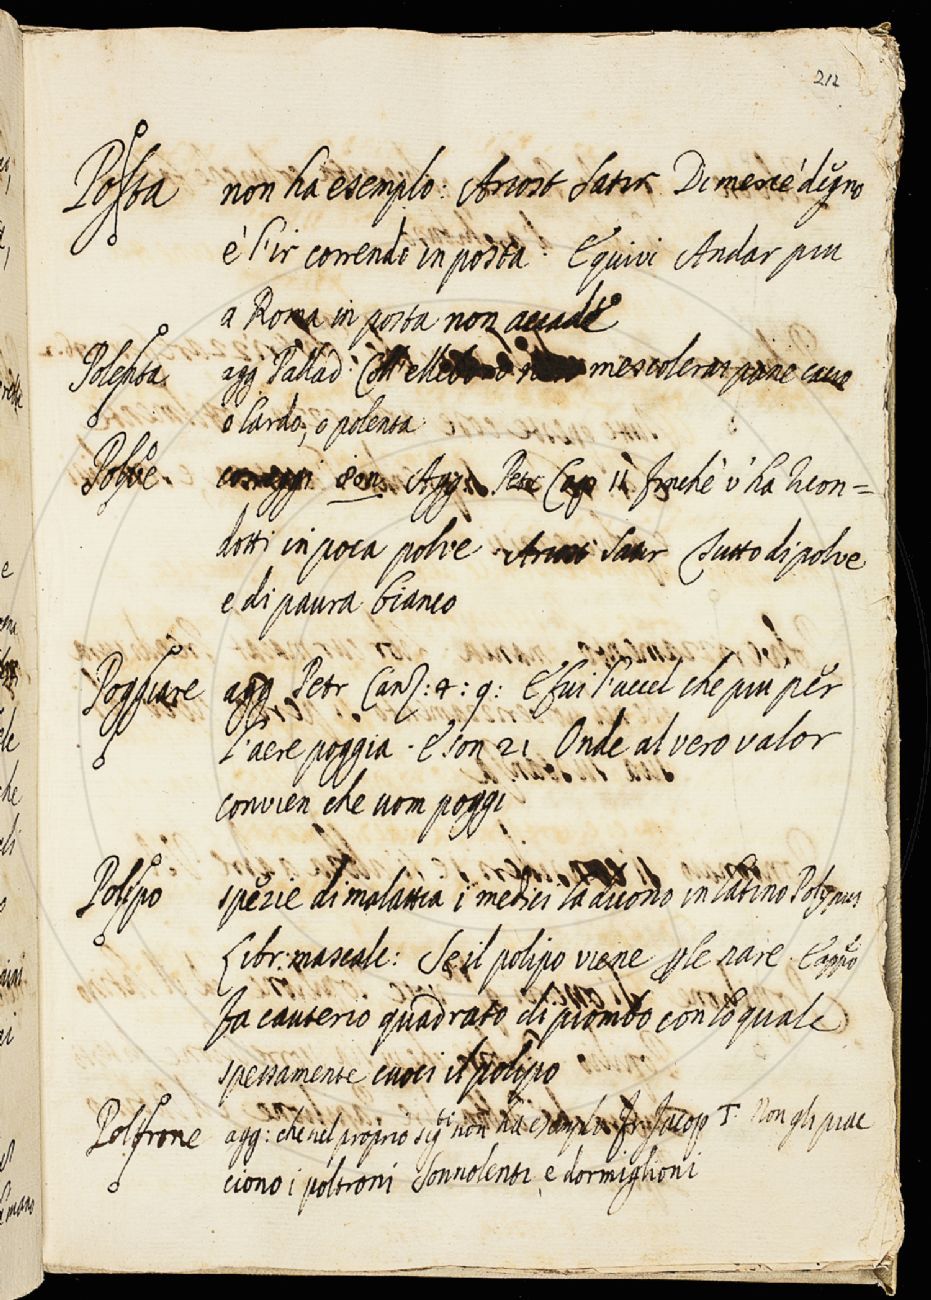 212
Posta non ha esempio: Ariost Satir Di mere è degno
è l'ir correndo in posta. E quivi Andar piu
a Roma in posta non accade
Polenta agg Pallad: mescolerai pane
o Cardo, o polenta
Polve correggi son Agg: Petr Cap 11 finchè v'ha ricon=
dotti in poca polve Ariost Satir Tutto di polve
e di paura bianco
Poggiare agg Petr Canz: 4: 9: E fui l'uccel che piu per
l'aere poggia. E son 21 Onde al vero valor
convien che uom poggi
Polipo spezie di malattia i medici la dicono in latino Polypus
Libr: mascalc: Se il polipo viene nelle nare
fa cauterio quadrato di piombo con lo quale
spessamente cuoci il polipo
Poltrone agg: che nel proprio sigti non ha esempli Fr Jacop T. Non gli piac
ciono i poltroni Sonnolenti, e dormiglioni